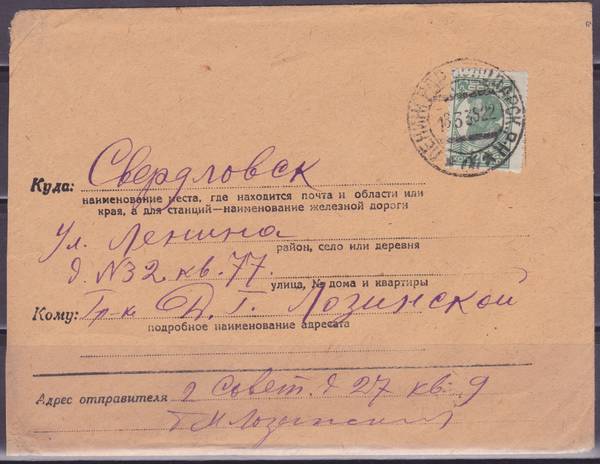 ЛЕНИНГРАД
18 6 38 22
Куда: Свердловск
наименование места, где находится почта и области или
края, а для станций—наименование железной дороги
Ул. Ленина
район, село или деревня
д. N32 кв. 77.
улица, № дома и квартиры
Кому: Гр-ке Д. Г. Лозинской
подробное наименование адресата
Адрес отправителя 2 Совет. д 27 кв 9
Лозинский